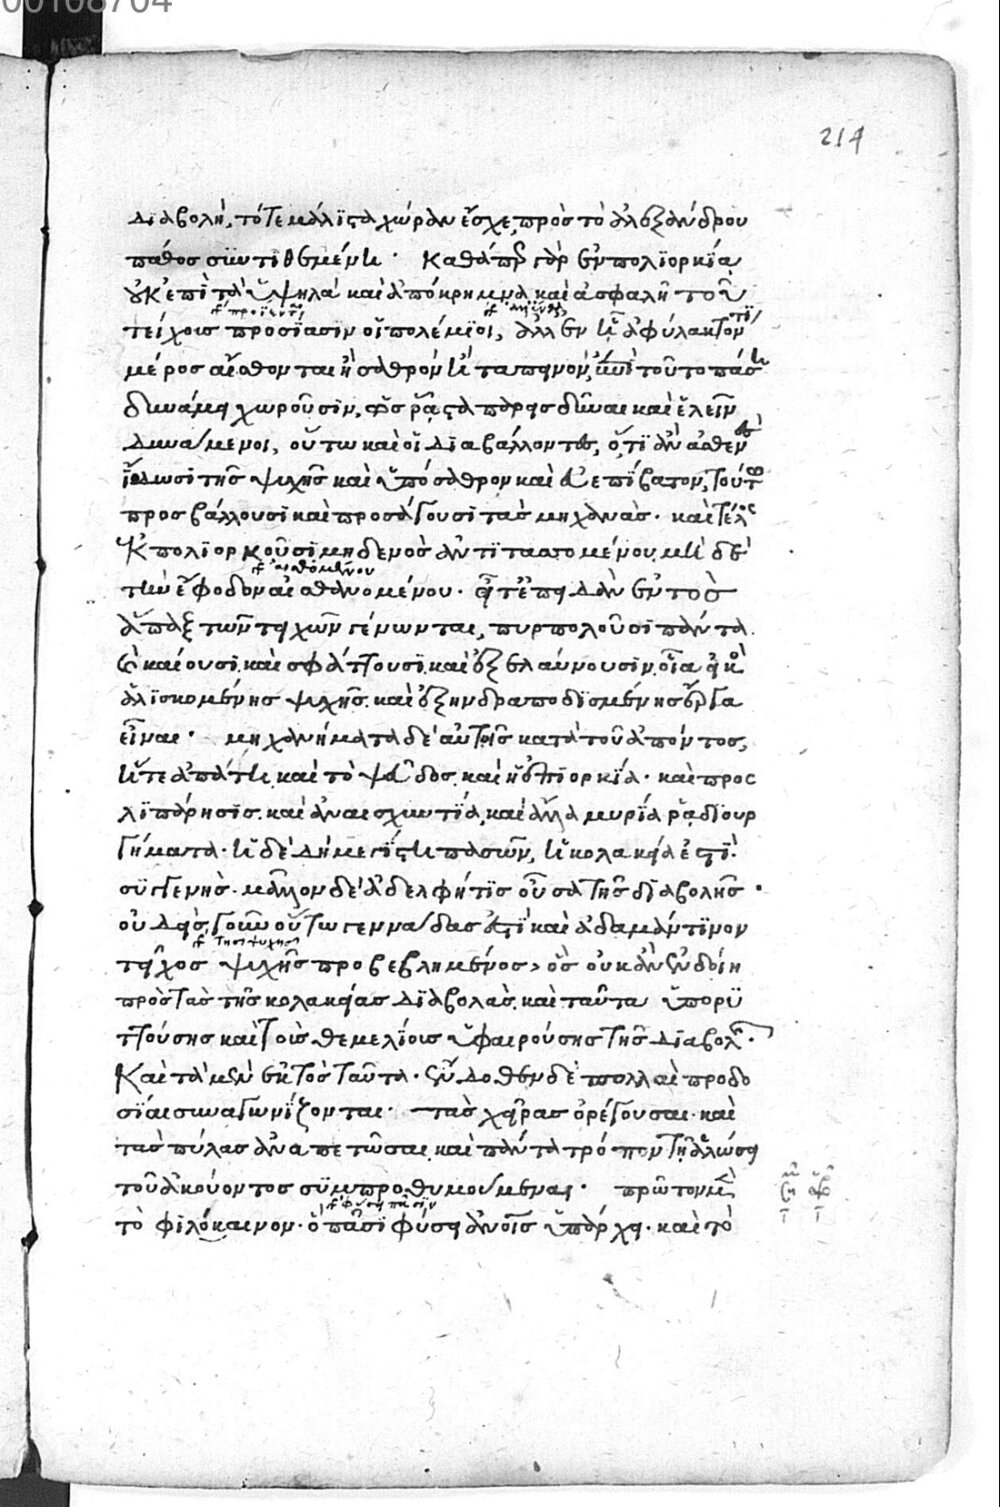 214
διαβολή, τότε μάλιστα χώραν ἔσχε, πρὸς τὸ ἀλεξάνδρου
πάθος συντιθεμένη· καθάπερ γὰρ ἐν πολιορκία
οὐκ ἐπὶ τὰ ὑψηλὰ καὶ ἀπόκρημνα καὶ ἀσφαλῆ τοῦ
τείχους προσίασιν οἱ πολέμιοι, ἀλλ' ἐν ἧ ἀφύλακτον
μέρος αἴσθονται ἢ σαθρὸν ἢ ταπεινὸν, ἐπὶ τοῦτο πάση
δυνάμει χωροῦσιν, ὡς ῥᾶστα παρεισδῦναι καὶ ἑλεῖν
δυνάμενοι, οὕτω καὶ οἱ διαβάλλοντες, ὅ,τι ἂν ἀσθενὲς
ἴδωσι τῆς ψυχῆς καὶ ὑπόσαθρον καὶ εὐεπίβατον, τούτω
προσβάλλουσι καὶ προσάγουσι τὰς μηχανάς· καὶ τέλος
ἐκπολιορκοῦσι μηδενὸς ἀντιταττομένου μηδὲ
τὴν ἔφοδον αἰσθανομένου· εἶτ' ἐπειδὰν ἐντὸς
ἅπαξ τῶν τειχῶν γένωνται, πυρπολοῦσι πάντα
καὶ καίουσι καὶ σφάττουσι καὶ ἐξελαύνουσιν, οἷα εἰκὸς
ἁλισκομένης ψυχῆς καὶ ἐξηνδραποδισμένης ἔργα
εἶναι· μηχανήματα δὲ αὐτοῖς κατὰ τοῦ ἀπόντος,
ἥτε ἀπάτη καὶ τὸ ψεῦδος καὶ ἡ ἐπιορκία· καὶ προσ
λιπάρησις καὶ ἀναισχυντία καὶ ἄλλα μυρία ῥαδιουρ
γήματα· ἡ δὲ δὴ μεγίστη πασῶν, ἡ κολακεία ἐστι·
συγγενὴς· μᾶλλον δὲ ἀδελφή τις οὖσα τῆς διαβολῆς·
οὐδεὶς γοῦν οὕτω γεννάδας ἐστὶ καὶ ἀδαμάντινον
τεῖχος ψυχῆς προβεβλημένος, ὃς οὐκ ἂν ἐνδοίη
πρὸς τὰς τῆς κολακείας διαβολὰς καὶ ταῦτα ὑπορυ
ττούσης καὶ τοὺς θεμελίους ὑφαιρούσης τῆς διαβολῆς·
Καὶ τὰ μὲν ἐκτὸς ταῦτα· ἔνδοθεν δὲ πολλαὶ προδο
σίαι συναγωνίζονται· τὰς χεῖρας ὀρέγουσαι· καὶ
τὰς πύλας ἀναπετῶσαι καὶ πάντα τρόπον τῆ ἁλώσει
τοῦ ἀκούοντος συμπροθυμούμεναι· πρῶτον μὲν
τὸ φιλόκαινον· ὃ πᾶσι φύσει ἀνοις ὑπάρχει· καὶ τὸ